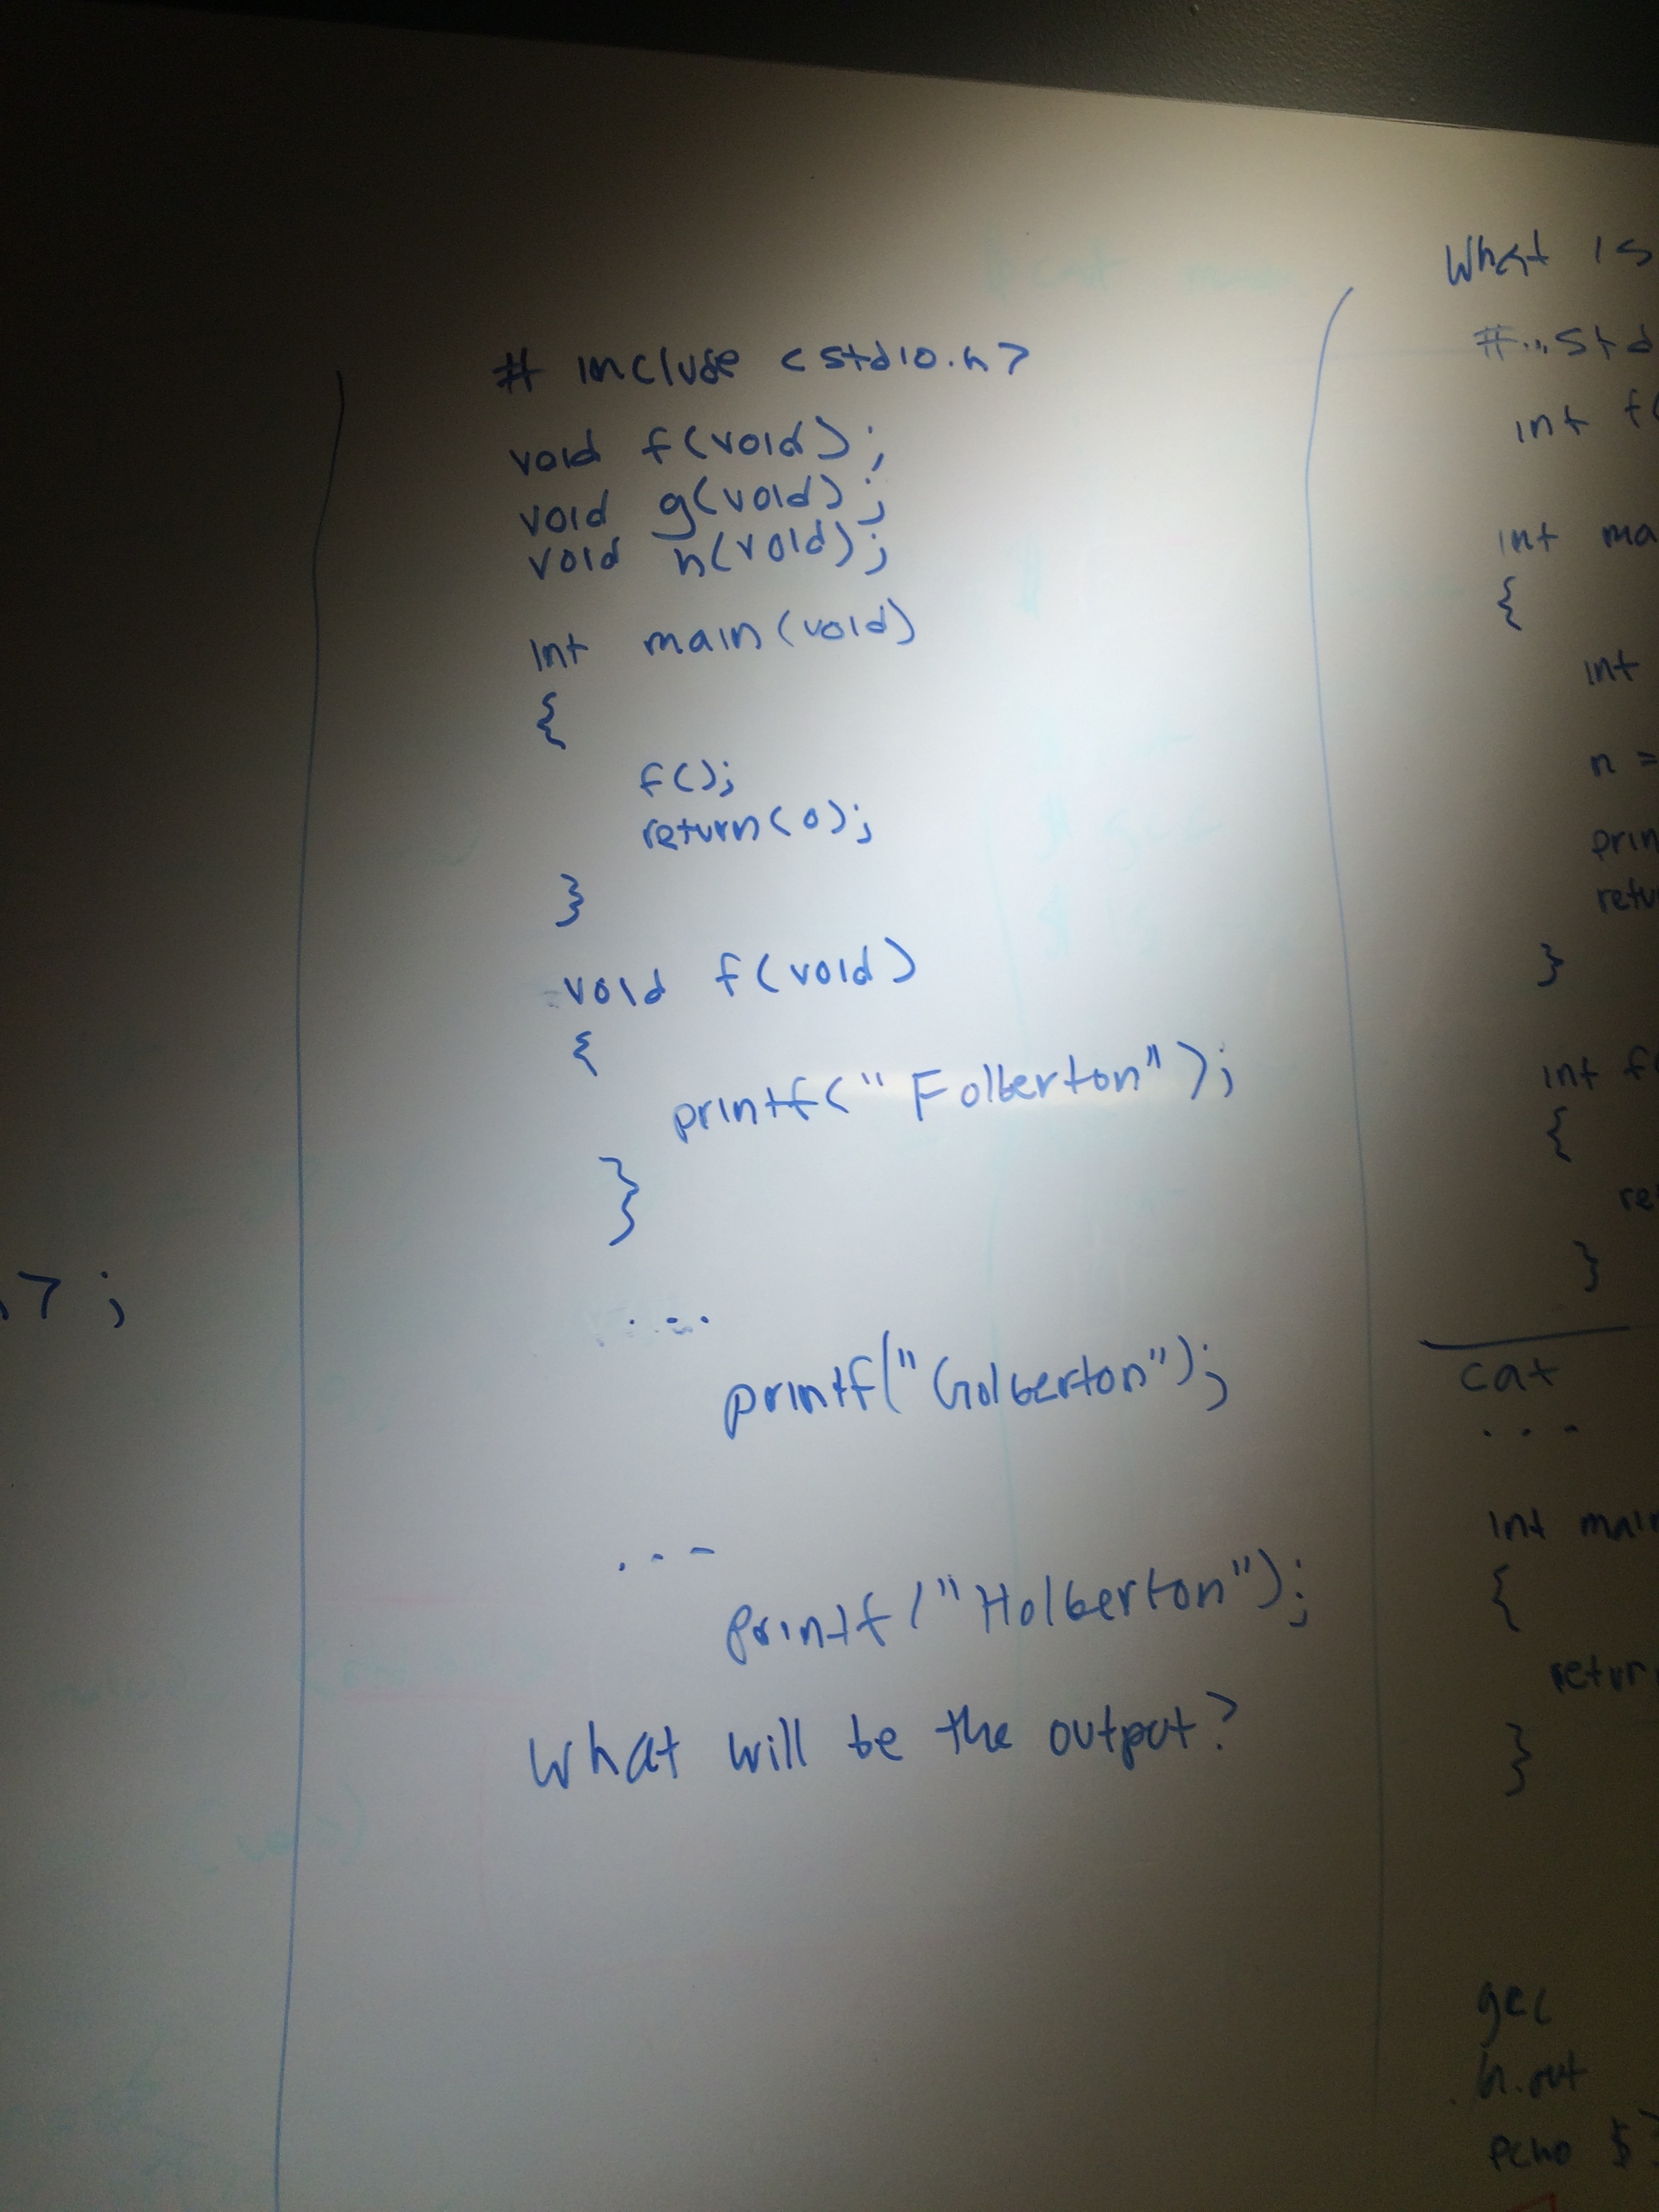 # include <stdio.h>
void f(void);
void g(void);
void h(void);
int main(void)
{
f();
return(0);
}
void f(void)
{
printf("Folberton");
}
...
printf("Golberton");
...
printf("Holberton");
What will be the output?
>;
What is
#...std
int f(
int ma
{
int
n =
prin
retu
}
int f
{
re
}
cat
...
int main
{
retur
}
gcc
h.out
echo $